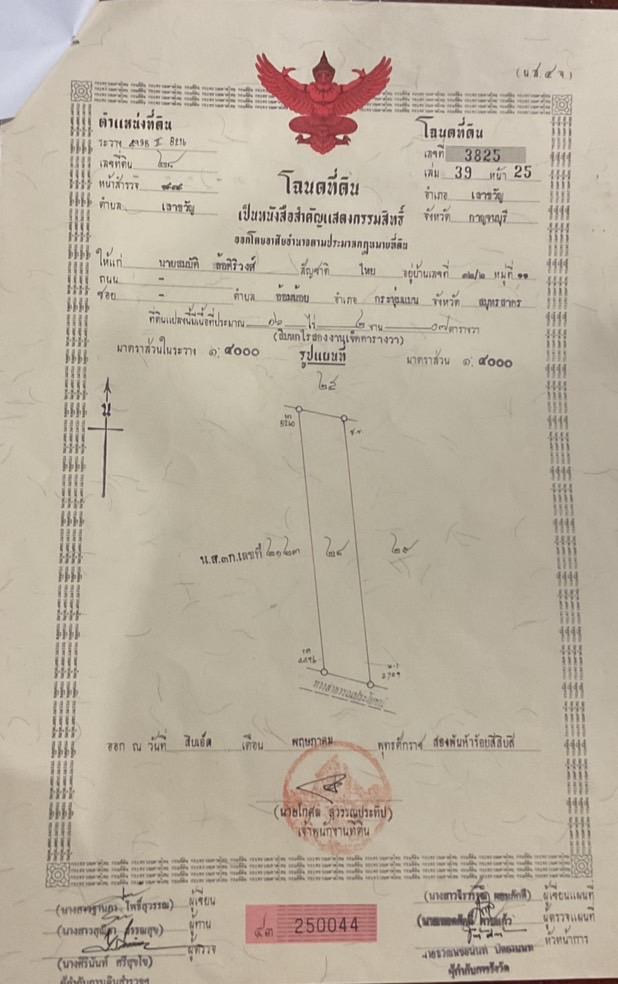 (น.ส. ๔ จ)
ตำแหน่งที่ดิน
ระวาง II 8216
เลขที่ดิน ๒๘
หน้าสำรวจ
ตำบล เลาขวัญ
โฉนดที่ดิน
เลขที่ 3825
เล่ม 39 หน้า 25
อำเภอ เลาขวัญ
จังหวัด กาญจนบุรี
โฉนดที่ดิน
เป็นหนังสือสำคัญแสดงกรรมสิทธิ์
ออกโดยอาศัยอำนาจตามประมวลกฎหมายที่ดิน
ให้แก่ นายสมบัติ สัญชาติ ไทย อยู่บ้านเลขที่ ๓๒/๒ หมู่ที่ ๑๑
ถนน -
ซอย - ตำบล อ้อมน้อย อำเภอ กระทุ่มแบน จังหวัด สมุทรสาคร
ที่ดินแปลงนี้มีเนื้อที่ประมาณ ๑๖ ไร่ ๒ งาน ๐๗ ตารางวา
(สิบหกไร่สองงานเจ็ดตารางวา)
มาตราส่วนในระวาง ๑: ๔๐๐๐ รูปแผนที่ มาตราส่วน ๑: ๔๐๐๐
น
น.ส.๓ก.เลขที่ ๒๑๒๓ ๒๘ ๒๙
ทางสาธารณประโยชน์
ออก ณ วันที่ สิบเอ็ด เดือน พฤษภาคม พุทธศักราช สองพันห้าร้อยสี่สิบสี่
(นายโกศล สุวรรณประทีป)
เจ้าพนักงานที่ดิน
โพธิ์สุวรรณ) ผู้เขียน
(นางสาวสุณีดา ผู้ทาน
ผู้ตรวจ
(นางศิรินันท์ ศรีสุขใจ)
๔๓ 250044
ผู้เขียนแผนที่
ผู้ตรวจแผนที่
หัวหน้าการ
ผู้กำกับการรังวัด